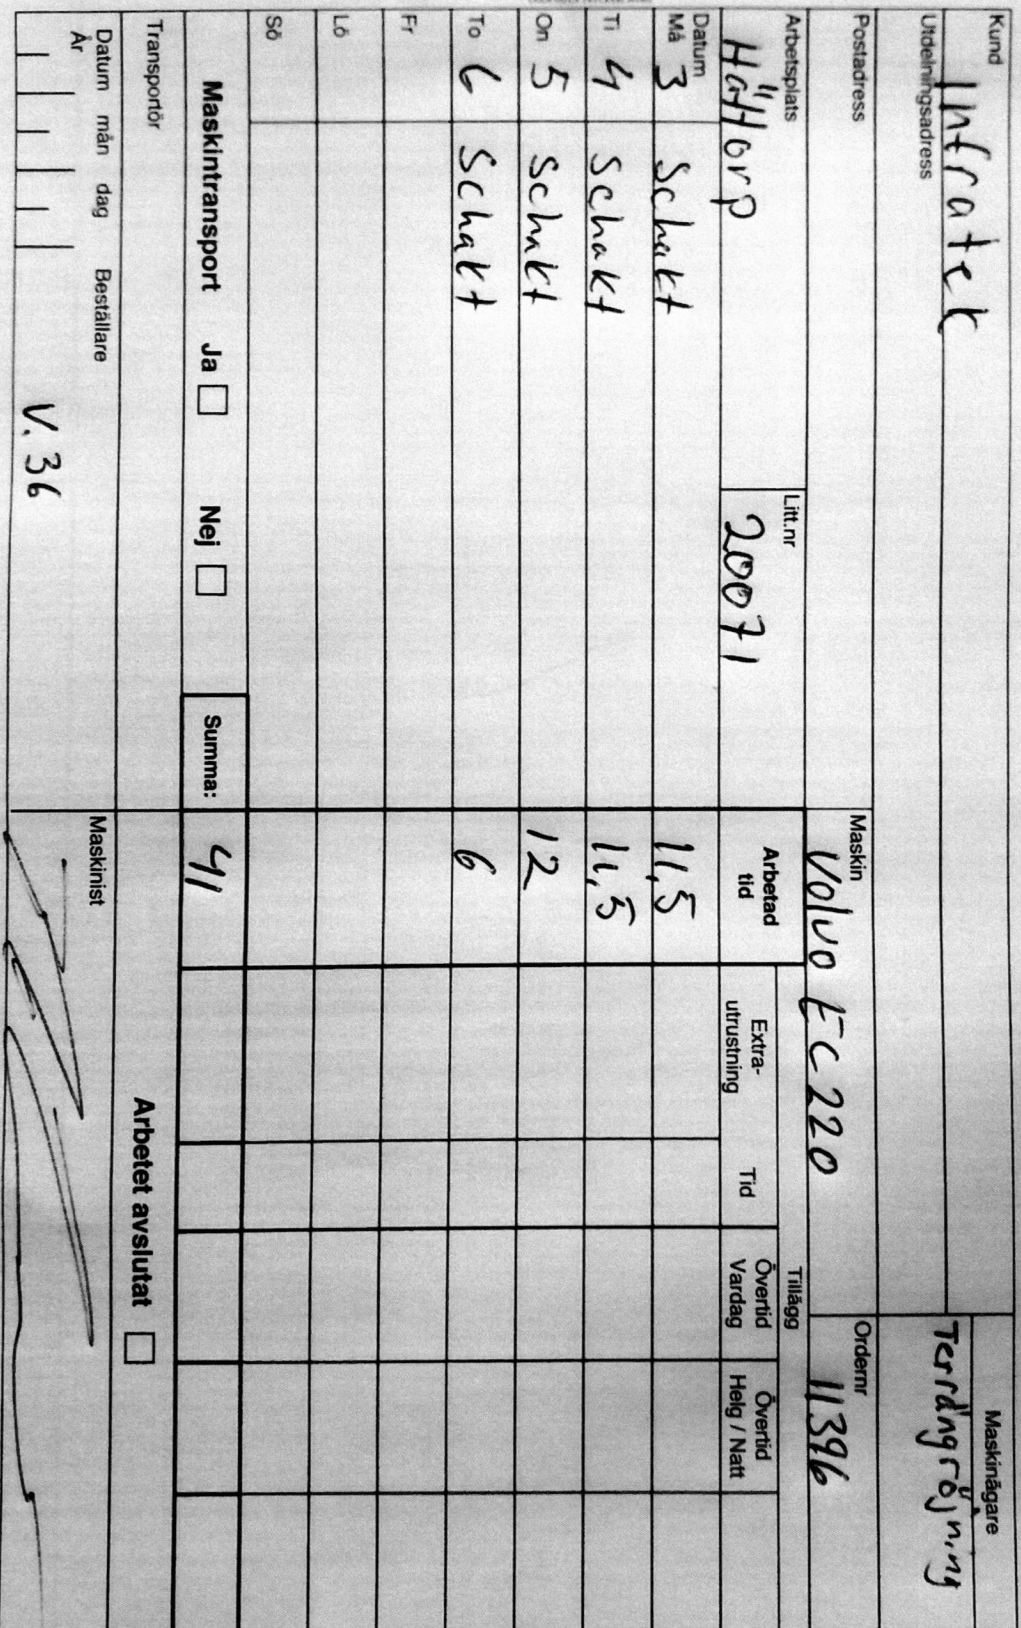 Kund
Infratek
Maskinägare
Utdelningsadress
Terrängröjning
Postadress
Maskin
Volvo EC220
Ordernr
11396
Arbetsplats
Hättorp
Litt.nr
20071
Arbetad tid
Tillägg
Extra-utrustning
Tid
Övertid Vardag
Övertid Helg / Natt
Datum
Må 3 Schakt 11,5
Ti 4 Schakt 11,5
On 5 Schakt 12
To 6 Schakt 6
Fr
Lö
Sö
Maskintransport Ja Nej Summa: 41
Transportör
Arbetet avslutat
Datum mån dag Beställare Maskinist
År
V. 36